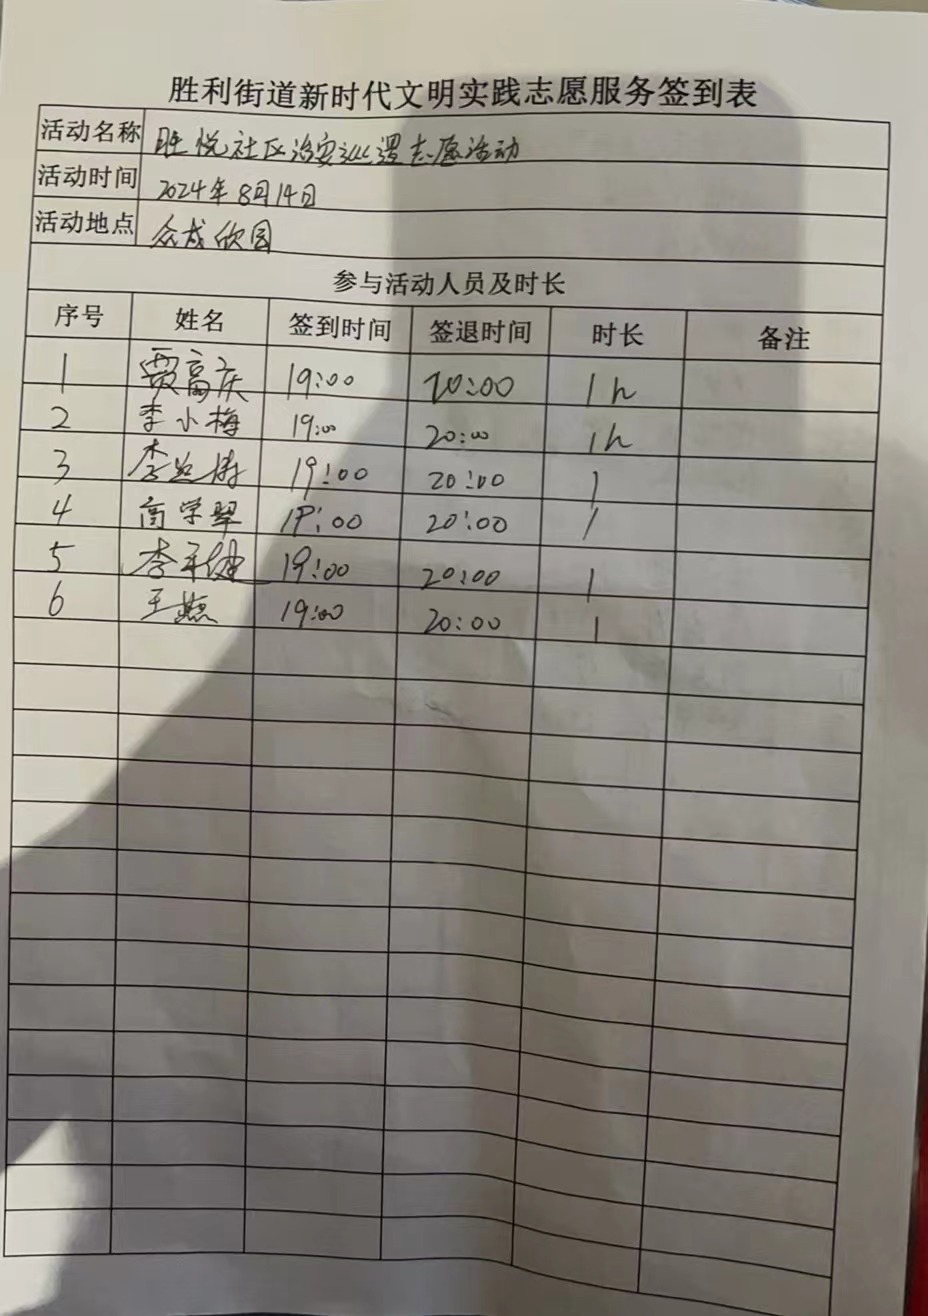 胜利街道新时代文明实践志愿服务签到表
活动名称 胜悦社区治安巡逻志愿活动
活动时间 2024年8月14日
活动地点 众成欣园
参与活动人员及时长
序号 姓名 签到时间 签退时间 时长 备注
1 贾富庆 19:00 20:00 1h
2 李小梅 19:00 20:00 1h
3 李 19:00 20:00 1
4 商学翠 19:00 20:00 1
5 李 19:00 20:00 1
6 王燕 19:00 20:00 1